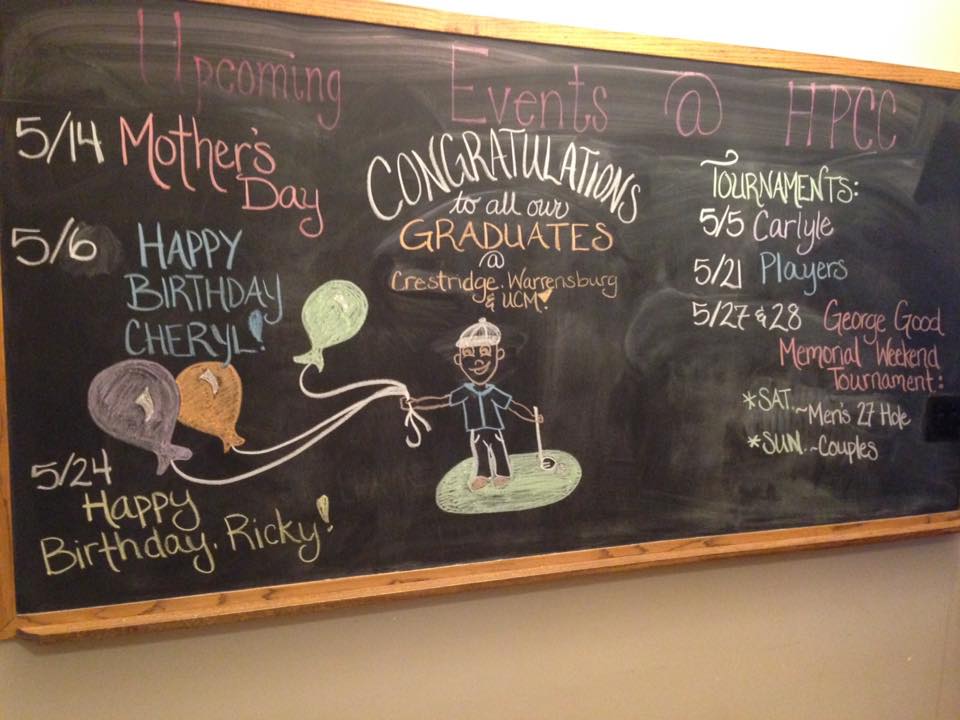 Upcoming Events @ HPCC
5/14 Mother's
Day
5/6 HAPPY
BIRTHDAY
CHERYL!
5/24
Happy
Birthday, Ricky!
CONGRATULATIONS
to all our
GRADUATES
@
Crestridge, Warrensburg
& UCM!
TOURNAMENTS:
5/5 Carlyle
5/21 Players
5/27 & 28 George Good
Memorial Weekend
Tournament:
*SAT. ~Men's 27 Hole
*SUN. ~Couples